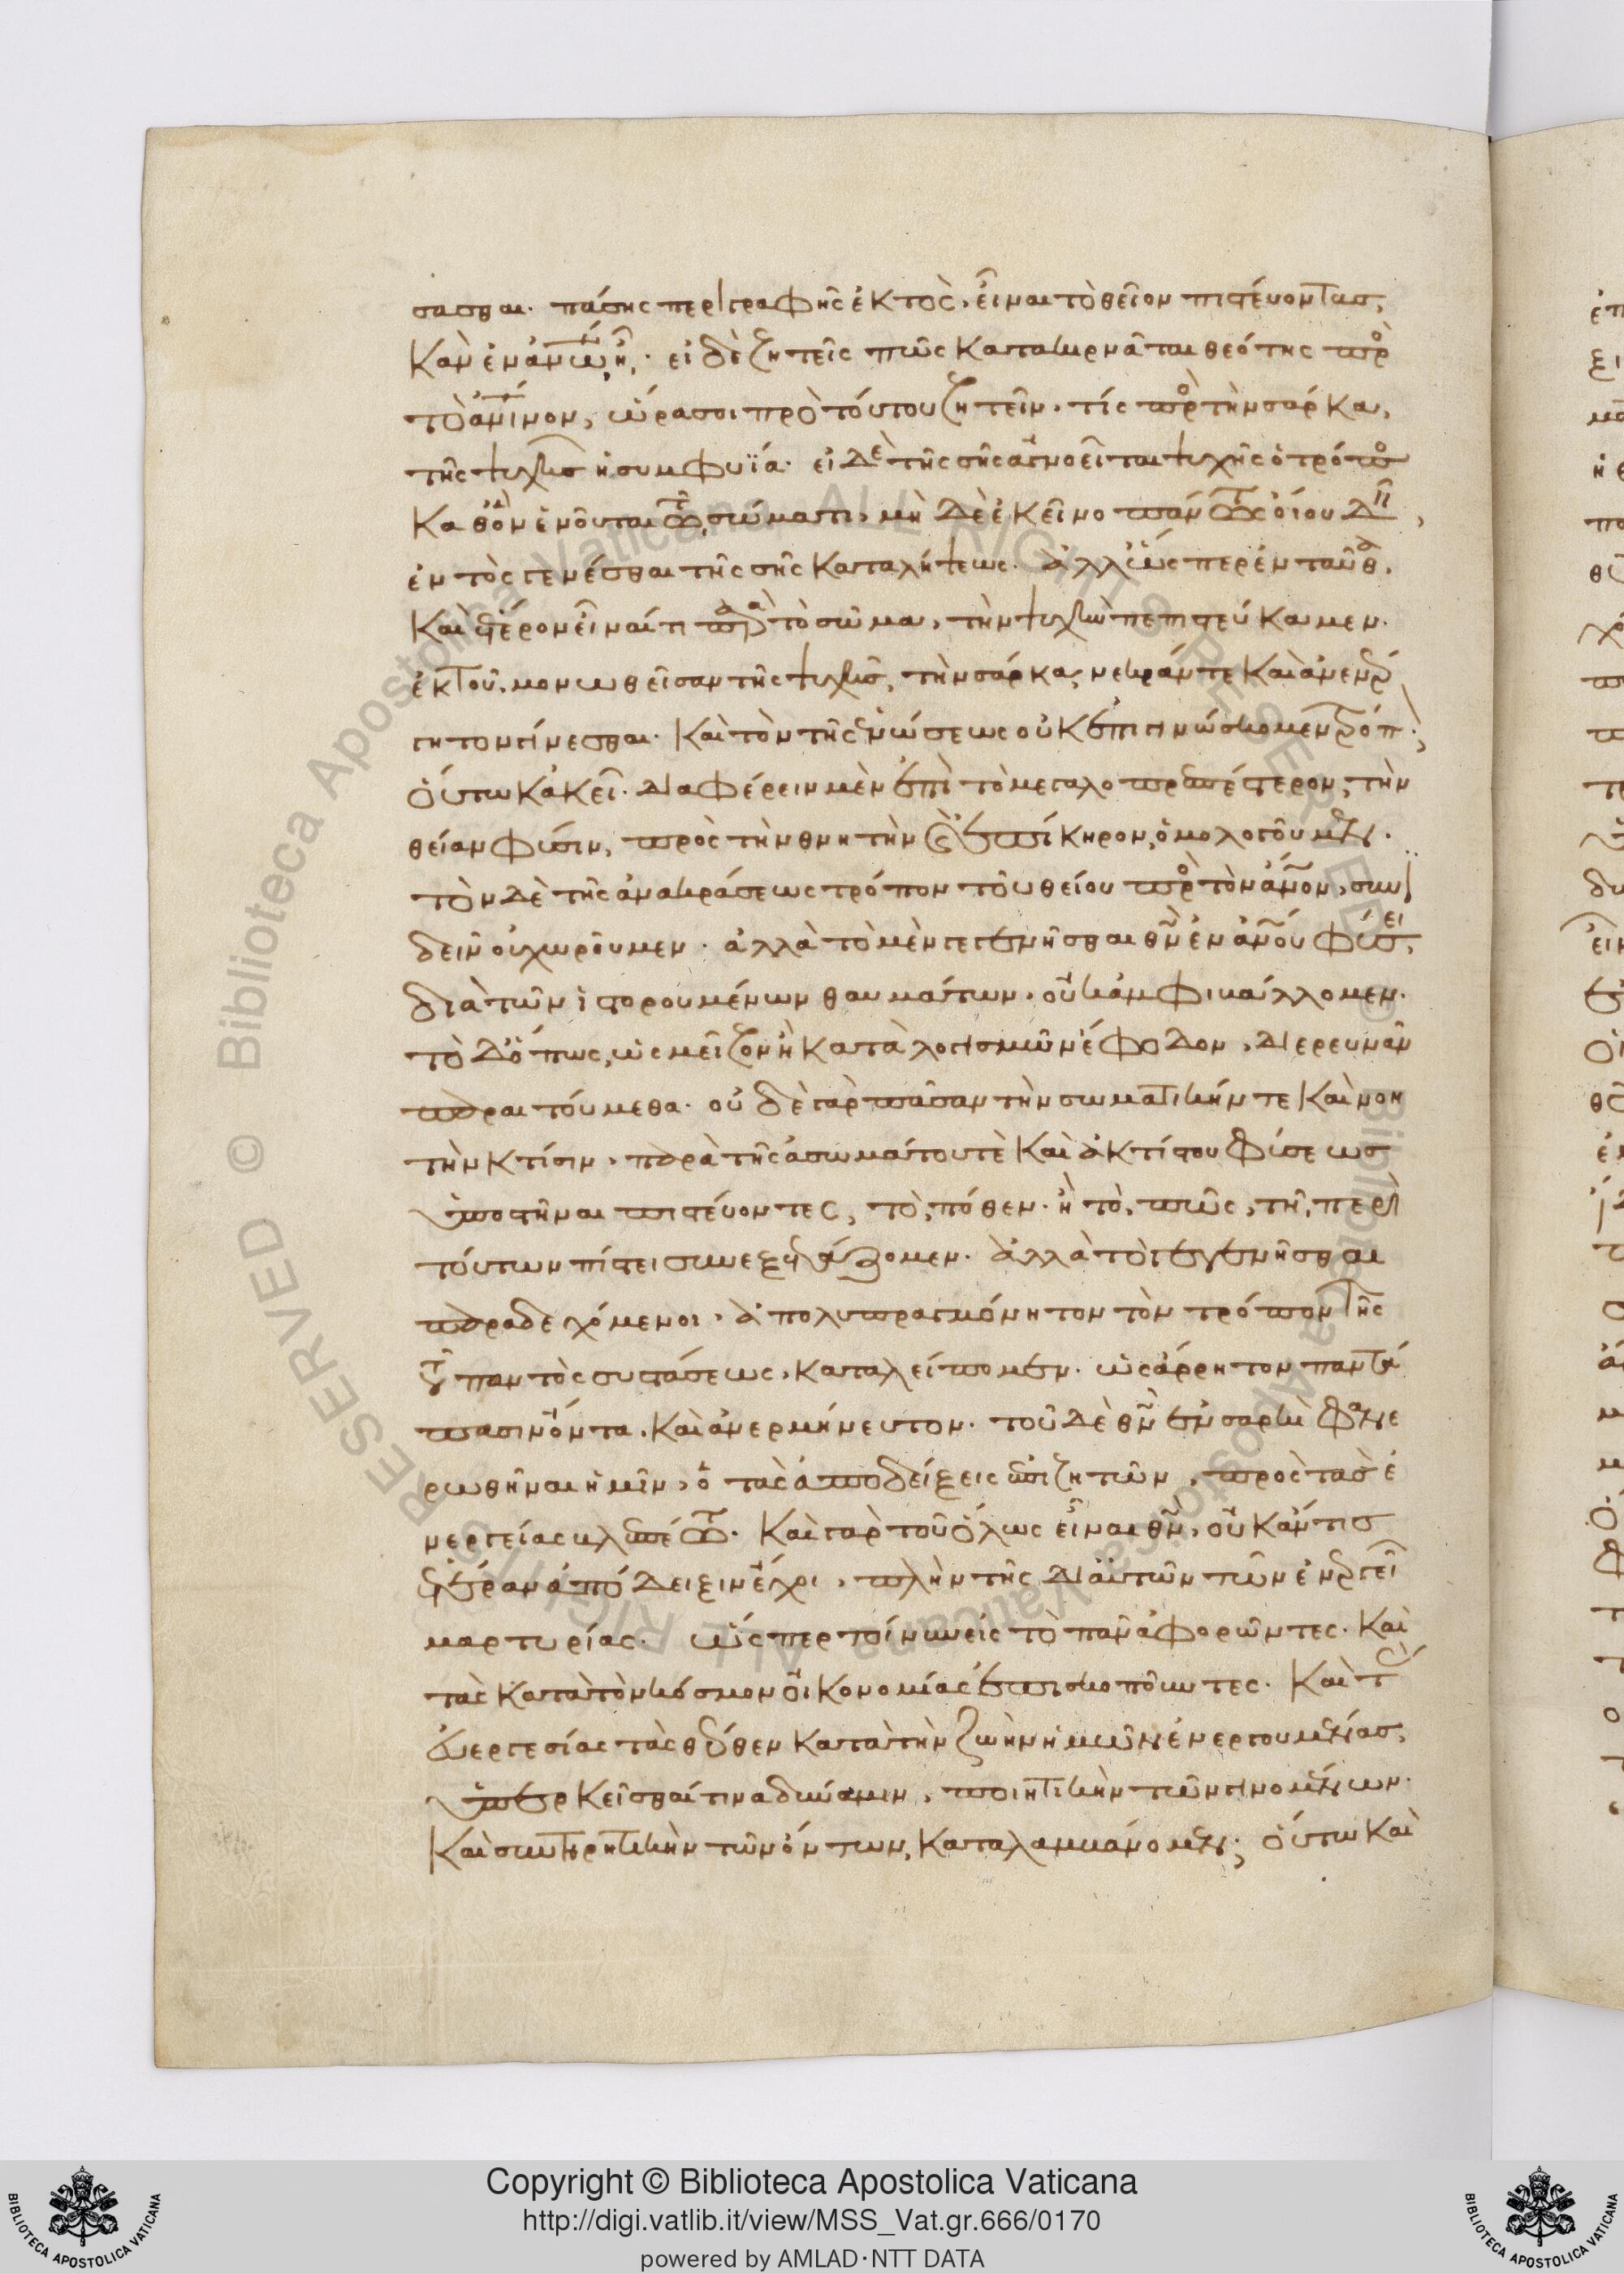 σασθαι. πάσης περιγραφῆς ἐκτὸς, εἶναι τὸ θεῖον πιστεύοντας,
κἂν ἐν ἀνῳ ᾖ. εἰ δὲ ζητεῖς πῶς κατακιρνᾶται θεότης πρὸ
τὸ ἀνινον, ὥρα σοι πρὸ τούτου ζητεῖν, τίς πρὸ τὴν σάρκα,
τῆς ψυχῆς ἡ συμφυΐα. εἰ δὲ τῆς σῆς ἀγνοεῖται ψυχῆς ὁ τρόπος
καθ' ὃν ἑνοῦται τῷ σώματι, μὴ δὲ ἐκεῖνο πάντως οἴου δ
ἐντὸς γενέσθαι τῆς σῆς καταλήψεως. ἀλλ' ὥσπερ ἐνταῦθα,
καὶ ἕτερον εἶναί τι παρὰ τὸ σῶμα, τὴν ψυχὴν πεπιστεύκαμεν.
ἐκ τοῦ μονωθεῖσαν τῆς ψυχῆς, τὴν σάρκα, νεκράν τε καὶ ἀνενέρ
γητον γίνεσθαι. καὶ τὸν τῆς ἑνώσεως οὐκ ἐπιγινώσκομεν τρόπ
οὕτω κἀκεῖ. διαφέρειν μὲν ἐπὶ τὸ μεγαλοπρεπέστερον, τὴν
θείαν φύσιν, πρὸς τὴν θνητὴν καὶ ἐπίκηρον, ὁμολογοῦμεν.
τὸν δὲ τῆς ἀνακράσεως τρόπον τοῦ θείου πρὸ τὸν ἀνον, συν
ιδεῖν οὐ χωροῦμεν. ἀλλὰ τὸ μὲν γεγενῆσθαι θν ἐν ἀνου φύσει,
διὰ τῶν ἱστορουμένων θαυμάτων, οὐκ ἀμφιβάλλομεν.
τὸ δ' ὅπως, ὡς μεῖζον ἢ κατὰ λογισμῶν ἔφοδον, διερευνᾶν
παραιτούμεθα. οὐδὲ γὰρ πᾶσαν τὴν σωματικήν τε καὶ νοη
τὴν κτίσιν, παρὰ τῆς ἀσωμάτου τὲ καὶ ἀκτίστου φύσεως
ὑποστῆναι πιστεύοντες, τὸ, πόθεν. ἢ τὸ, πῶς, τῇ, περὶ
τούτων πίστει συνεξετάζομεν. ἀλλὰ τὸ γεγενῆσθαι
παραδεχόμενοι, ἀπολυπραγμόνητον τὸν τρόπον τῆς
τοῦ παντὸς συστάσεως, καταλείπομεν. ὡς ἄρρητον παντά
πασιν ὄντα, καὶ ἀνερμήνευτον. τοῦ δὲ θν ἐν σαρκὶ πεφανε
ρωθῆναι ἡμῖν, ὁ τὰς ἀποδείξεις ἐπιζητῶν, πρὸς τὰς ἐ
νεργείας βλεπέτω. καὶ γὰρ τοῦ ὅλως εἶναι θν, οὐκ ἄν τις
ἑτέραν ἀπόδειξιν ἔχοι, πλὴν τῆς δι' αὐτῶν τῶν ἐνεργει
μαρτυρίας. ὥσπερ τοίνυν εἰς τὸ πᾶν ἀφορῶντες. καὶ
τὰς κατὰ τὸν κόσμον οἰκονομίας ἐπισκοποῦντες. καὶ τ
εὐεργεσίας τὰς θεόθεν κατὰ τὴν ζωὴν ἡμῶν ἐνεργουμένας,
ὑπερκεῖσθαί τινα δύναμιν, ποιητικὴν τῶν γινομένων.
καὶ συντηρητικὴν τῶν ὄντων, καταλαμβάνομεν, οὕτω καὶ
Copyright © Biblioteca Apostolica Vaticana
http://digi.vatlib.it/view/MSS_Vat.gr.666/0170
powered by AMLAD·NTT DATA